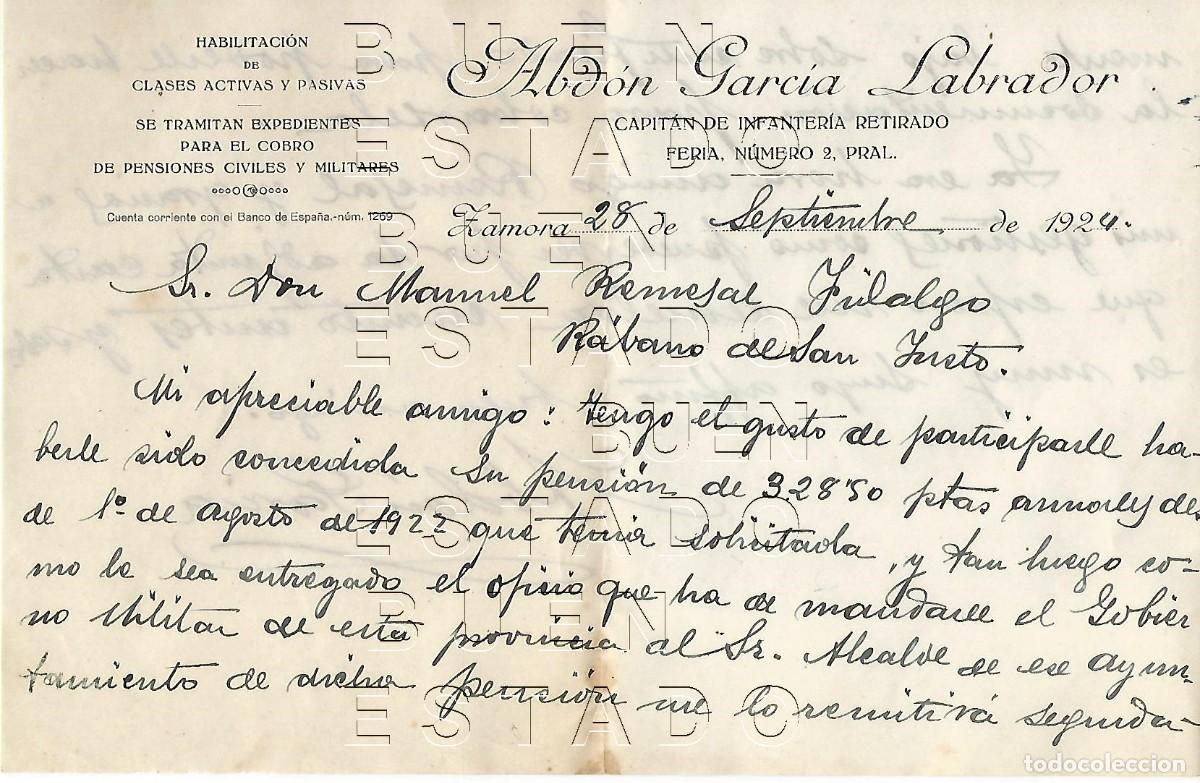 HABILITACIÓN
DE
CLASES ACTIVAS Y PASIVAS
SE TRAMITAN EXPEDIENTES
PARA EL COBRO
DE PENSIONES CIVILES Y MILITARES
Cuenta corriente con el Banco de España.-núm. 1269
Abdón García Labrador
CAPITÁN DE INFANTERÍA RETIRADO
FERIA, NÚMERO 2, PRAL.
Zamora 28 de Septiembre de 1924.
Sr. Don Manuel Remesal Fidalgo
Rábano de San Justo.
Mi apreciable amigo: tengo el gusto de participarle ha-
berle sido concedida su pensión de 328'50 ptas anuales des
de 1º de Agosto de 1922 que tenia solicitada, y tan luego co-
mo le sea entregado el oficio que ha de mandarle el Gobier
no Militar de esta provincia al Sr. Alcalde de ese ayun-
tamiento de dicha pensión me lo remitirá seguida-
BUEN
ESTADO
BUEN
ESTADO
BUEN
ESTADO
BUEN
ESTADO
todocoleccion